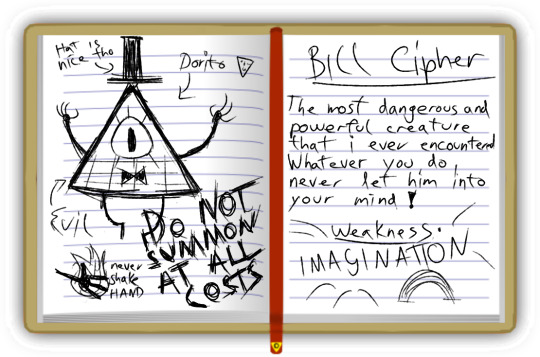 Hat is
nice tho
Dorito
Evil
DO NOT
SUMMON
AT ALL
COSTS
never
shake
HAND
Bill Cipher
The most dangerous and
powerful creature
that i ever encounterd
Whatever you do,
never let him into
your mind!
Weakness:
IMAGINATION